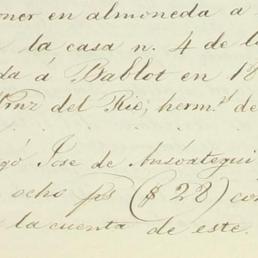 oner en almoneda a
la casa n. 4 de l
da á Bablot en 18
Cruz del Rio; herm.s de
gó Jose de Ansóategui
ocho ps ($ 28) co
la cuenta de este.